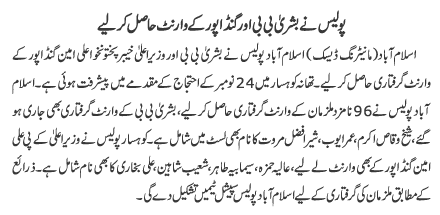 پولیس نے بشریٰ بی بی اور گنڈاپور کے وارنٹ حاصل کر لیے
اسلام آباد (مانیٹرنگ ڈیسک) اسلام آباد پولیس نے بشریٰ بی بی اور وزیراعلیٰ خیبرپختونخوا علی امین گنڈاپور کے
وارنٹ گرفتاری حاصل کر لیے۔ تھانہ کوہسار میں 24 نومبر کے احتجاج کے مقدمے میں پیشرفت ہوئی ہے۔ اسلام
آباد پولیس نے 96 نامزد ملزمان کے وارنٹ گرفتاری حاصل کر لیے، بشریٰ بی بی کے وارنٹ گرفتاری بھی جاری ہو
گئے، شیخ وقاص اکرم، عمر ایوب، شیر افضل مروت کا نام بھی لسٹ میں شامل ہے۔ کوہسار پولیس نے وزیراعلیٰ کے پی علی
امین گنڈاپور کے بھی وارنٹ لے لیے، عالیہ حمزہ، سیمابیہ طاہر، شعیب شاہین، علی بخاری کا بھی نام شامل ہے۔ ذرائع
کے مطابق ملزمان کی گرفتاری کے لیے اسلام آباد پولیس سپیشل ٹیمیں تشکیل دے گی۔